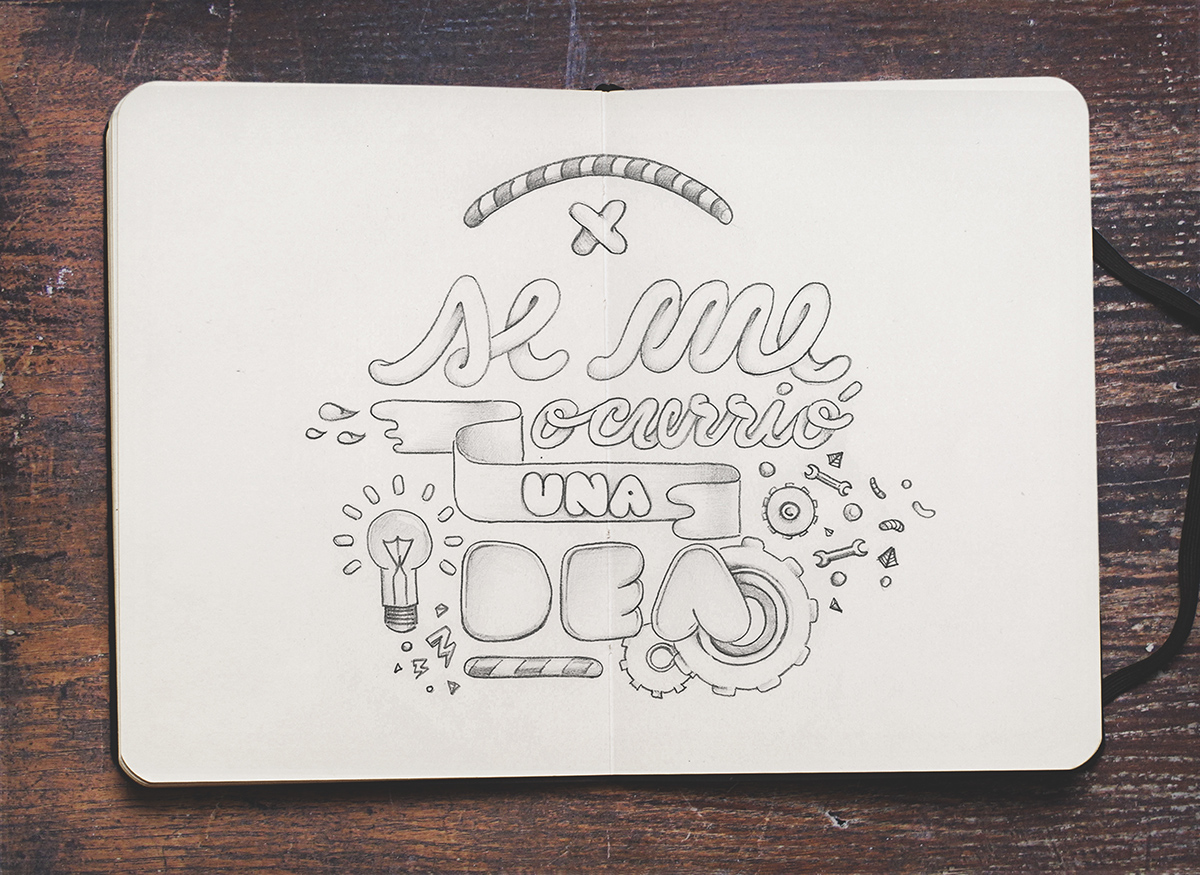 se me
ocurrió
UNA
IDEA